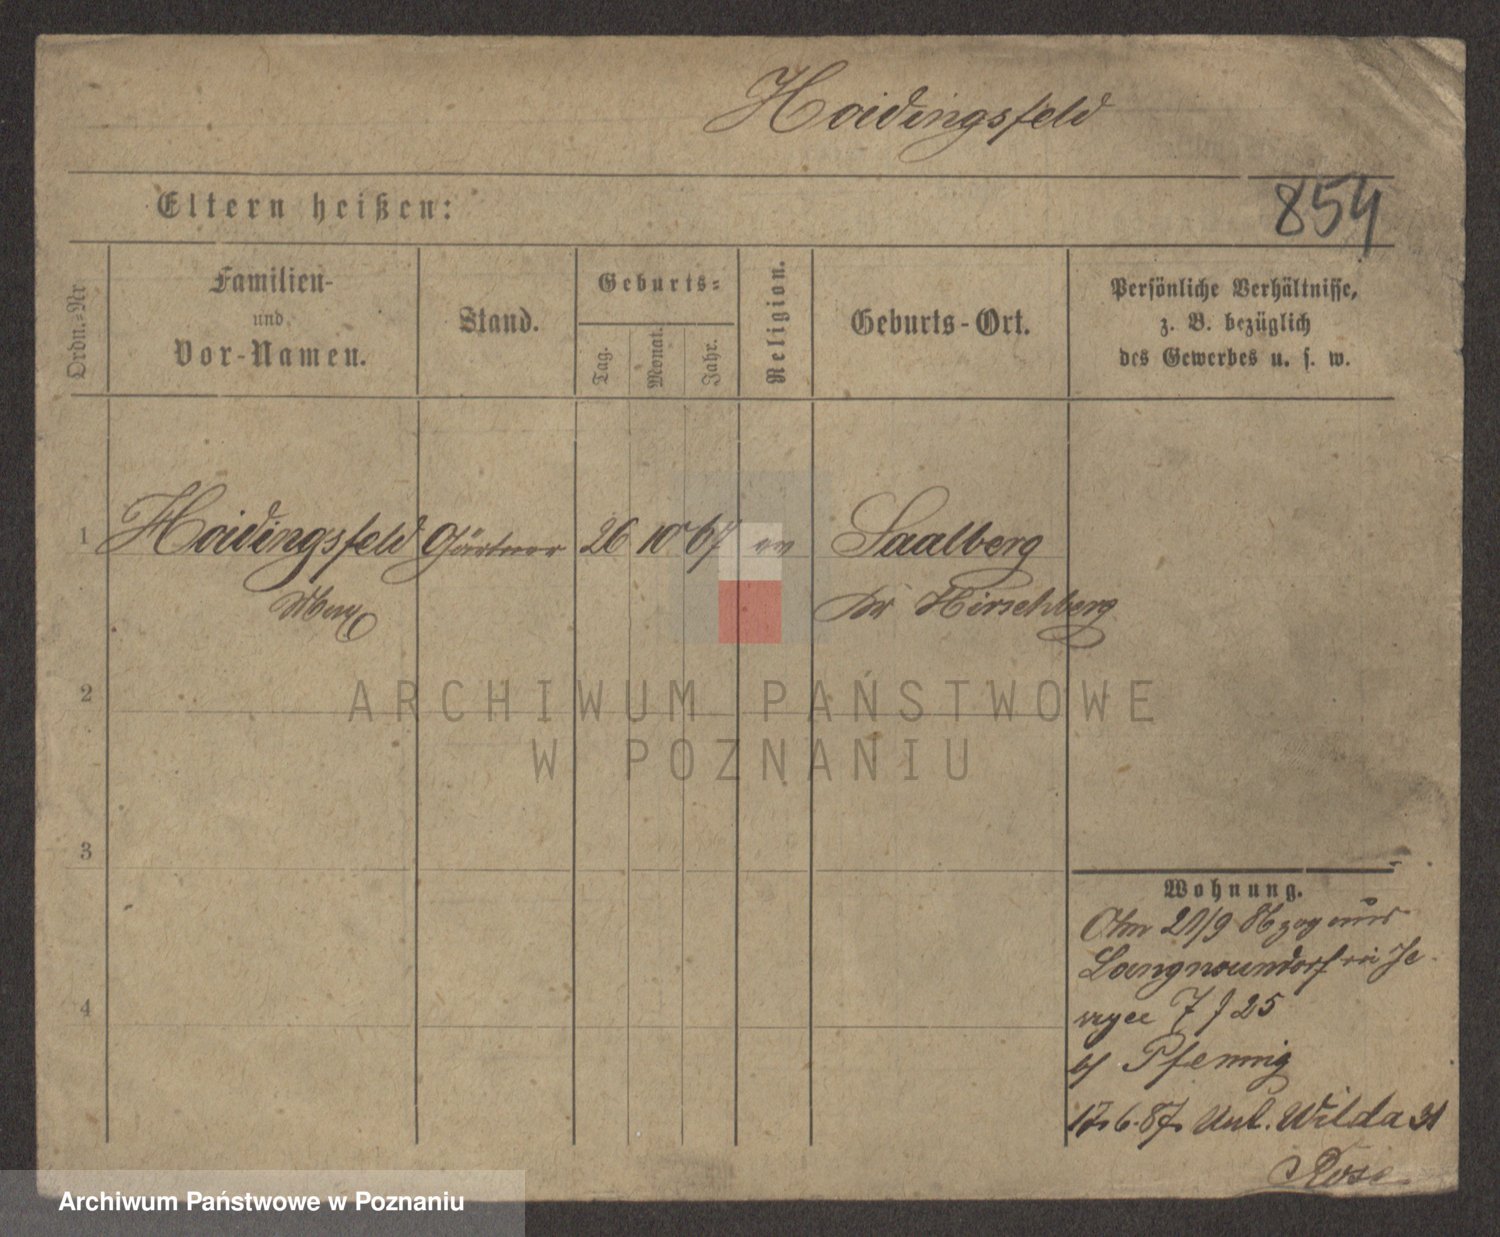 Hoidingsfeld
854
Eltern heißen:
Ordn.-Nr
Familien-
und
Vor-Namen.
Stand.
Geburts-
Tag.
Monat.
Jahr.
Religion.
Geburts-Ort.
Persönliche Verhältnisse,
z. B. bezüglich
des Gewerbes u. s. w.
1 Hoidingsfeld Gärtner 26 10 67 ev Saalberg
Max Kr Hirschberg
2
3
4
ARCHIWUM PAŃSTWOWE
W POZNANIU
Wohnung.
21/9 86
7 f 25
b/ Pfennig
17.6.87. Unt. Wilda 31
Rose
Archiwum Państwowe w Poznaniu